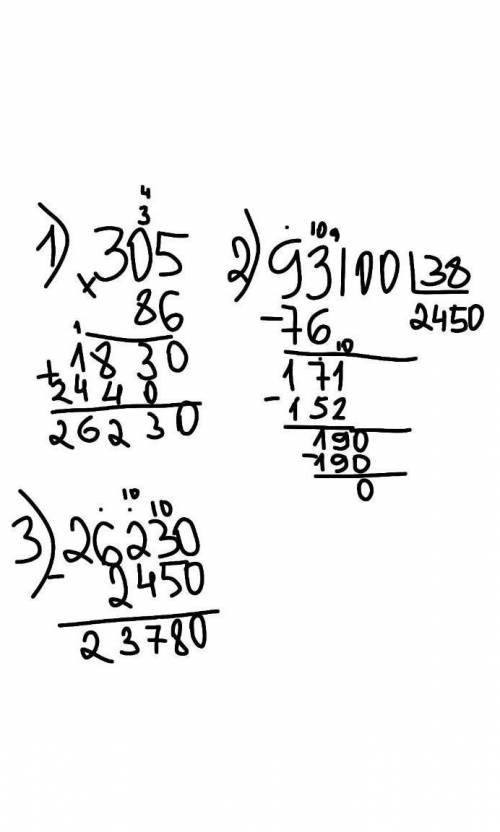 1) 4
3
305
× 86
1
+ 1830
2440
26230
2) 10 9
93100 | 38
-76 2450
10
171
-152
190
-190
0
3) 10 10
- 26230
2450
23780